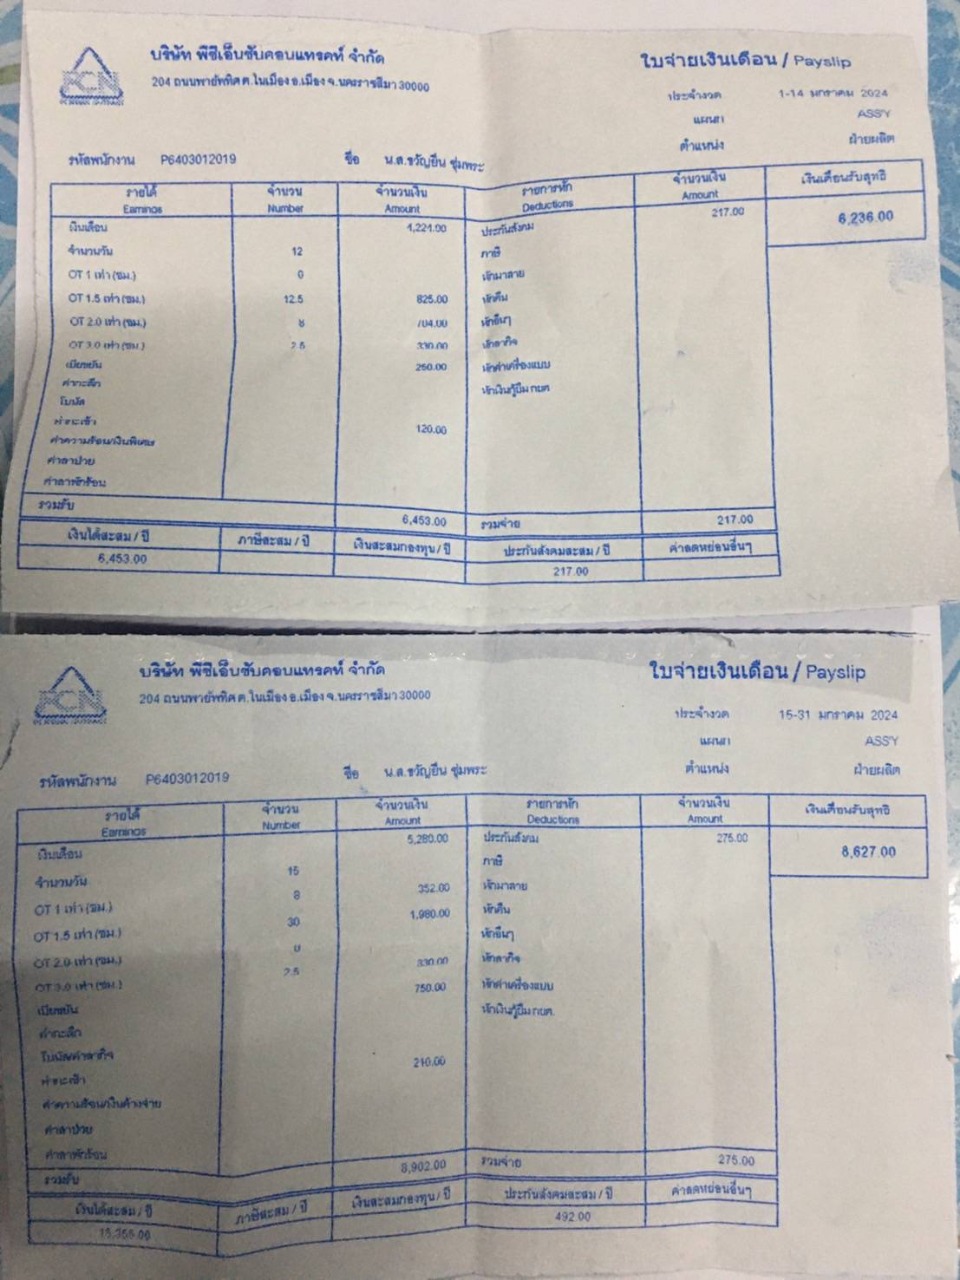 บริษัท พีซีเอ็นซับคอนแทรคท์ จำกัด
ใบจ่ายเงินเดือน / Payslip
204 ถนนพายัพทิศ ต.ในเมือง อ.เมือง จ.นครราชสีมา 30000
ประจำงวด 1-14 มกราคม 2024
แผนก ASS'Y
ตำแหน่ง ฝ่ายผลิต
รหัสพนักงาน P6403012019 ชื่อ น.ส.ขวัญยืน ชุ่มพระ
รายได้ จำนวน จำนวนเงิน รายการหัก จำนวนเงิน เงินเดือนรับสุทธิ
Earnings Number Amount Deductions Amount
เงินเดือน 4,224.00 ประกันสังคม 217.00 6,236.00
จำนวนวัน 12 ภาษี
OT 1 เท่า (ชม.) 0 หักมาสาย
OT 1.5 เท่า (ชม.) 12.5 825.00 หักคืน
OT 2.0 เท่า (ชม.) 8 704.00 หักอื่นๆ
OT 3.0 เท่า (ชม.) 2.5 330.00 หักลากิจ
เบี้ยขยัน 250.00 หักค่าเครื่องแบบ
ค่ากะดึก หักเงินกู้ยืม กยศ.
โบนัส
120.00
ค่าความร้อน/เงินพิเศษ
ค่าลาป่วย
ค่าลาพักร้อน
รวมรับ 6,453.00 รวมจ่าย 217.00
เงินได้สะสม / ปี ภาษีสะสม / ปี เงินสะสมกองทุน / ปี ประกันสังคมสะสม / ปี ค่าลดหย่อนอื่นๆ
6,453.00 217.00
บริษัท พีซีเอ็นซับคอนแทรคท์ จำกัด
ใบจ่ายเงินเดือน / Payslip
204 ถนนพายัพทิศ ต.ในเมือง อ.เมือง จ.นครราชสีมา 30000
ประจำงวด 15-31 มกราคม 2024
แผนก ASS'Y
ตำแหน่ง ฝ่ายผลิต
รหัสพนักงาน P6403012019 ชื่อ น.ส.ขวัญยืน ชุ่มพระ
รายได้ จำนวน จำนวนเงิน รายการหัก จำนวนเงิน เงินเดือนรับสุทธิ
Earnings Number Amount Deductions Amount
เงินเดือน 5,280.00 ประกันสังคม 275.00 8,627.00
จำนวนวัน 15 ภาษี
OT 1 เท่า (ชม.) 8 352.00 หักมาสาย
OT 1.5 เท่า (ชม.) 30 1,980.00 หักคืน
OT 2.0 เท่า (ชม.) 0 หักอื่นๆ
OT 3.0 เท่า (ชม.) 2.5 330.00 หักลากิจ
เบี้ยขยัน 750.00 หักค่าเครื่องแบบ
ค่ากะดึก หักเงินกู้ยืม กยศ.
โบนัส/ค่าลากิจ
210.00
ค่าความร้อน/เงินค้างจ่าย
ค่าลาป่วย
ค่าลาพักร้อน
รวมรับ 8,902.00 รวมจ่าย 275.00
เงินได้สะสม / ปี ภาษีสะสม / ปี เงินสะสมกองทุน / ปี ประกันสังคมสะสม / ปี ค่าลดหย่อนอื่นๆ
15,355.00 492.00